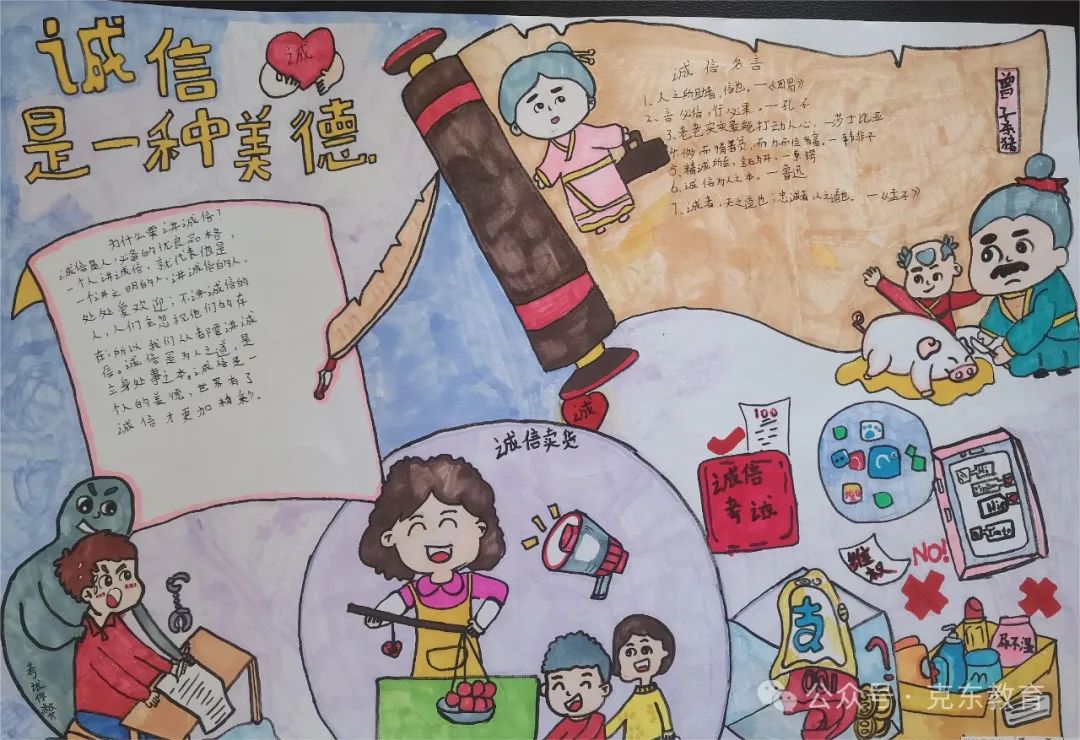 诚信
诚
是一种美德
为什么要讲诚信?
诚信是人必备的优良品格,
一个人讲诚信,就代表他是
一个讲文明的人,讲诚信的人,
处处受欢迎;不讲诚信的
人,人们会忽视他们的存
在;所以我们人人都要讲诚
信。诚信是为人之道,是
立身处事之本。诚信是一
个人的美德,世界有了
诚信才更加精彩。
诚信名言
1、人之所助者,信也。—《周易》
2、言必信,行必果。—孔子
3、老老实实最能打动人心。—莎士比亚
5、精诚所至,金石为开。—
6、诚信为人之本。—鲁迅
7、诚者,天之道也;思诚者,人之道也。—《孟子》
曾子杀猪
诚
诚信卖货
100
诚信
考试
维权
NO!
支
尿不湿
考试作弊
公众号·克东教育